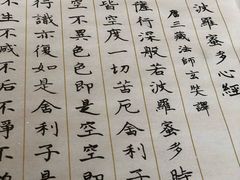 波羅蜜多心經
唐三藏法師玄奘譯
薩行深般若波羅蜜多時
皆空度一切苦厄舍利子
空不異色色即是空空即是
識亦復如是舍利子是
不生不滅不垢不淨不